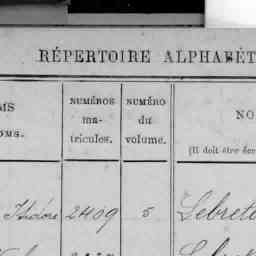 RÉPERTOIRE ALPHABÉT
MS
OMS.
NUMÉROS
ma-
tricules.
NUMÉRO
du
volume.
NO
(Il doit être écr
Isidore 2409 5 Lebret